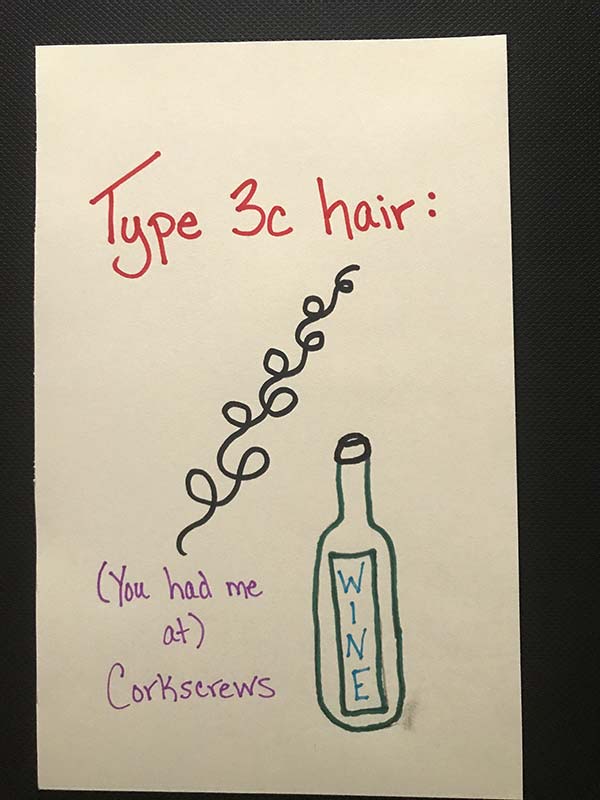 Type 3c hair:
(You had me
at)
Corkscrews
WINE